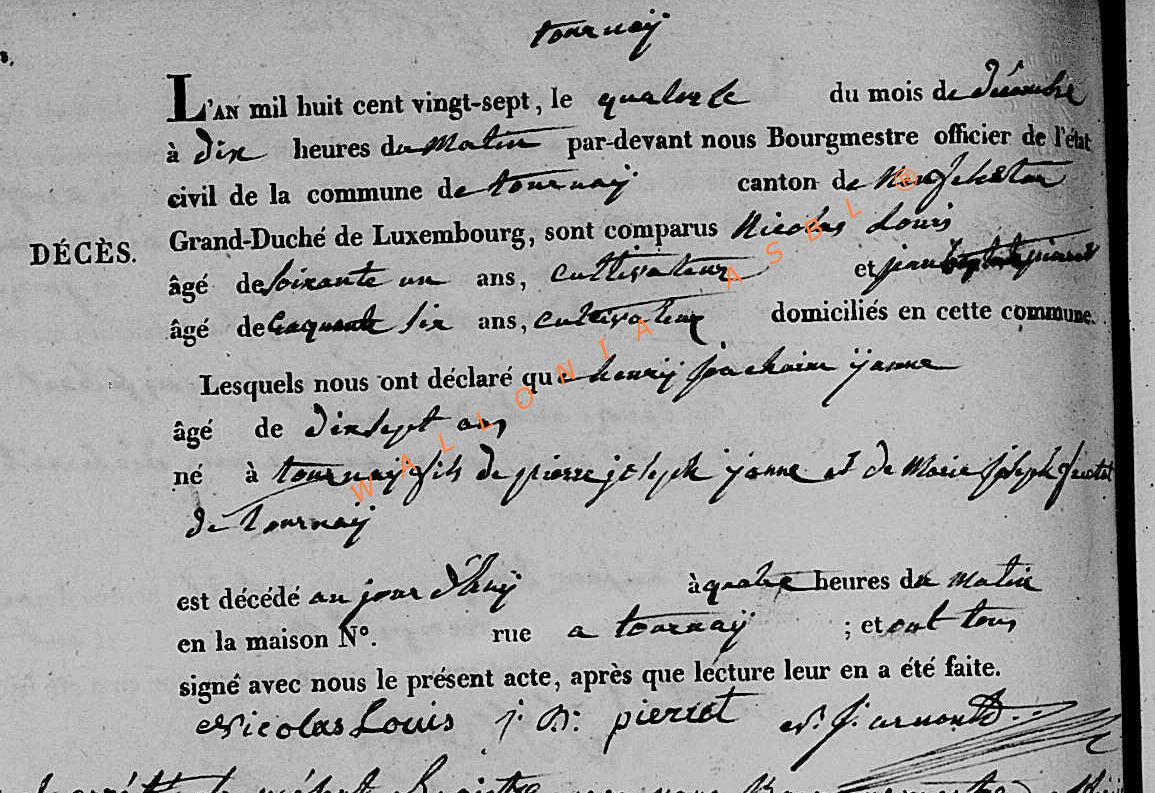 tournaÿ
L'AN mil huit cent vingt-sept, le quatorze du mois de décembre
à dix heures du matin par-devant nous Bourgmestre officier de l'état
civil de la commune de tournaÿ canton de Neufchateau
DÉCÈS.
Grand-Duché de Luxembourg, sont comparus Nicolas Louis
âgé de soixante un ans, cultivateur et jean baptiste pierret
âgé de Cinquante six ans, cultivateur domiciliés en cette commune.
Lesquels nous ont déclaré que henrÿ joachaim ÿanne
âgé de dix sept ans
né à tournaÿ fils de pierre joseph ÿanne et de Marie joseph
de tournaÿ
est décédé au jour d'huÿ à quatre heures du matin
en la maison N°. rue a tournaÿ ; et ont tous
signé avec nous le présent acte, après que lecture leur en a été faite.
Nicolas Louis j: B: pierret
WALLONIA ASBL ©